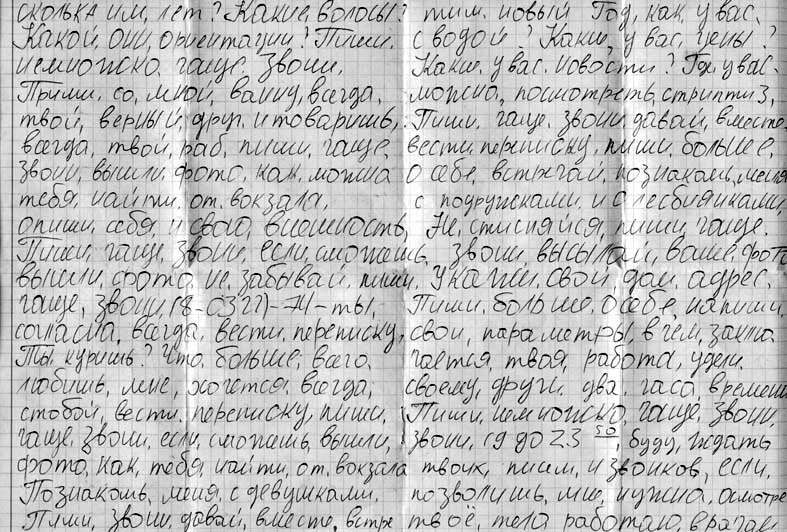 сколька им, лет? Какие, волосы?
Какой, они, ориентации? Пиши.
немножко. чаще. Звони.
Прими, со, мной, ванну, всегда,
твой, верный, друг. и товарищь,
всегда, твой, раб. пиши, чаще,
звони, вышли, фото, как, можна
тебя, найти, от, вокзала.
опиши, себя, и свою, внешность,
Пиши, чаще, звони, если, сможешь,
вышли, фото, не, забывай, пиши,
чаще, звони, (8-0322)-74-ты,
согласна, всегда, вести, переписку,
Ты, куришь? Что, больше, всего,
любишь, мне, хочется, всегда,
стобой, вести, переписку, пиши,
чаще, звони, если, сможешь, вышли,
фото, как, тебя, найти, от, вокзала
Познакомь, меня, с девушками.
Пиши, звони, давай, вместе, встре
тим. новый Год, как, у вас,
с водой? Какие, у вас, цены?
Какие, у вас, новости? Где, у вас,
можна, посмотреть, стриптиз,
Пиши, чаще, звони, давай, вместе,
вести, переписку, пиши, больше,
о себе, встречай, познакомь, меня
с подружками, и с лесбиянками,
Не, стисняйся, пиши, чаще.
звони, высылай, ваше, фото
Укажи, свой, дом, адрес,
Пиши, больше, о себе, напиши,
свои, параметры, в чём, заклю
чается, твоя, работа, удели
своему, другу, два, часа, времени
Пиши, немножко, чаще, звони,
звони, с 9 до 23 50, буду, ждать
твоих, писем, и звонков, если,
позволишь, мне, нужна, осмотре
твоё, тело работаю врачам